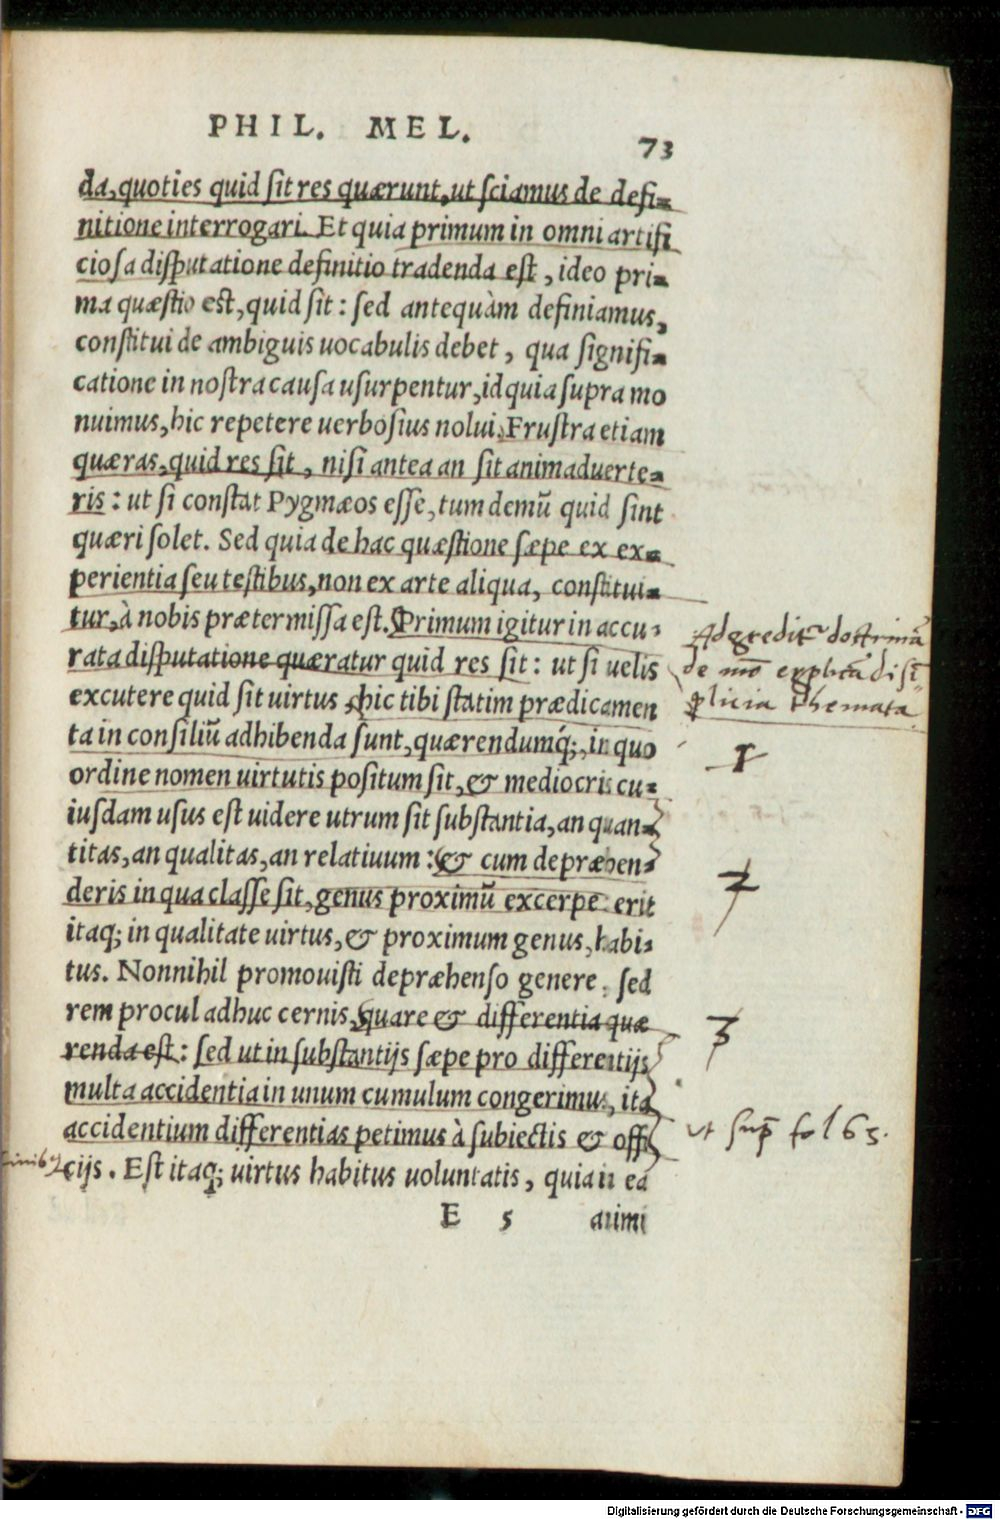 PHIL. MEL.
73
da, quoties quid sit res quærunt, ut sciamus de defi-
nitione interrogari. Et quia primum in omni artifi
ciosa disputatione definitio tradenda est, ideo pri-
ma quæstio est, quid sit: sed antequàm definiamus,
constitui de ambiguis uocabulis debet, qua signifi-
catione in nostra causa usurpentur, id quia supra mo
nuimus, hic repetere uerbosius nolui. Frustra etiam
quæras, quid res sit, nisi antea an sit animaduerte-
ris: ut si constat Pygmæos esse, tum demū quid sint
quæri solet. Sed quia de hac quæstione sæpe ex ex-
perientia seu testibus, non ex arte aliqua, constitui-
tur, à nobis prætermissa est. Primum igitur in accu-
rata disputatione quæratur quid res sit: ut si uelis
excutere quid sit uirtus, hic tibi statim prædicamen
ta in consiliū adhibenda sunt, quærendumq́;, in quo
ordine nomen uirtutis positum sit, & mediocris cu-
iusdam usus est uidere utrum sit substantia, an quan-
titas, an qualitas, an relatiuum: & cum depræhen-
deris in qua classe sit, genus proximū excerpe: erit
itaq; in qualitate uirtus, & proximum genus, habi-
tus. Nonnihil promouisti depræhenso genere, sed
rem procul adhuc cernis, quare & differentia quæ
renda est: sed ut in substantijs sæpe pro differentijs
multa accidentia in unum cumulum congerimus, ita
accidentium differentias petimus à subiectis & offi
cijs. Est itaq; uirtus habitus uoluntatis, quia in ea
E 5 animi
Adgredit doctrinā
de
plicia themata
1
2
3
ut sup fol 65.